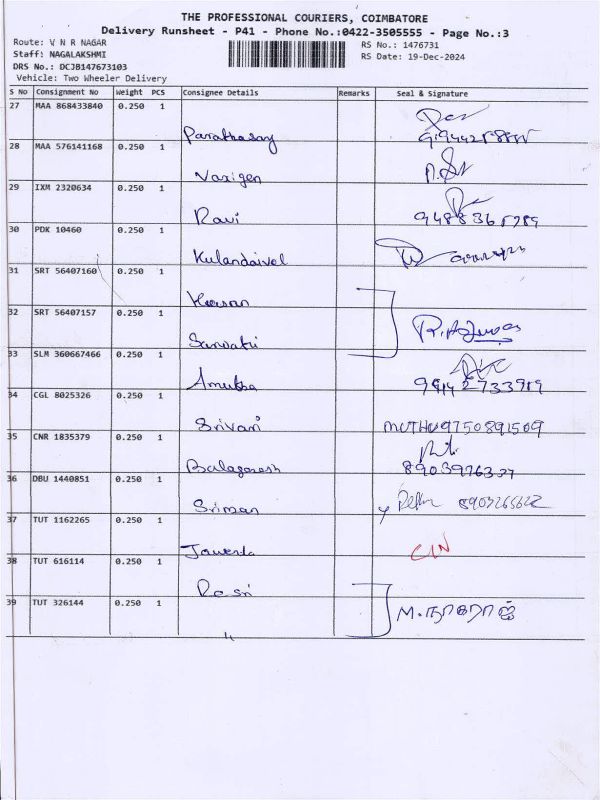 THE PROFESSIONAL COURIERS, COIMBATORE
Delivery Runsheet - P41 - Phone No.:0422-3505555 - Page No.:3
Route: V N R NAGAR
Staff: NAGALAKSHMI
DRS No.: DCJB147673103
Vehicle: Two Wheeler Delivery
RS No.: 1476731
RS Date: 19-Dec-2024
S No Consignment No Weight PCS Consignee Details Remarks Seal & Signature
27 MAA 868433840 0.250 1
28 MAA 576141168 0.250 1 Varigen
29 IXM 2320634 0.250 1 Ravi
30 PDK 10460 0.250 1 Kulandaivel
31 SRT 56407160 0.250 1
32 SRT 56407157 0.250 1 R.
33 SLM 360667466 0.250 1 Amutha
34 CGL 8025326 0.250 1 Srivari MUTHU 9750891509
35 CNR 1835379 0.250 1 Balaganesh
36 DBU 1440851 0.250 1 Sriman
37 TUT 1162265 0.250 1
38 TUT 616114 0.250 1
39 TUT 326144 0.250 1 " M.நாகராஜ்